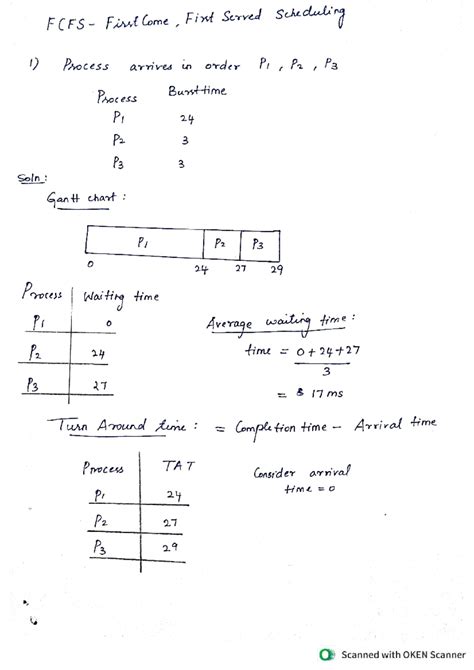 FCFS - First Come, First Served Scheduling
1) Process arrives in order P1, P2, P3
Process Bursttime
P1 24
P2 3
P3 3
Soln:
Gantt chart:
P1 P2 P3
0 24 27 29
Process Waiting time
P1 0
P2 24
P3 27
Average waiting time:
time = 0+24+27
3
= 17 ms
Turn Around time: = Completion time - Arrival time
Process TAT
P1 24
P2 27
P3 29
Consider arrival
time = 0
Scanned with OKEN Scanner